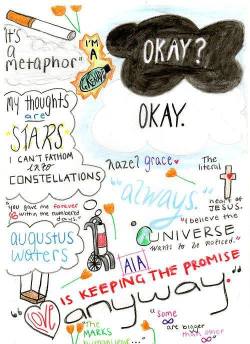 "It's
a
metaphor"
I'M
A
GRENADE
OKAY?
OKAY.
My thoughts
are
STARS
I CAN'T FATHOM
INTO
CONSTELLATIONS
hazel grace
The
literal
heart of
JESUS.
"you gave me forever
within the numbered
days."
"always."
"I believe the
UNIVERSE
wants to be noticed."
augustus
waters
AIA
IS KEEPING THE PROMISE
"LOVE
anyway."
"The
MARKS
humans leave..."
"Some
∞
are bigger
than other
∞"